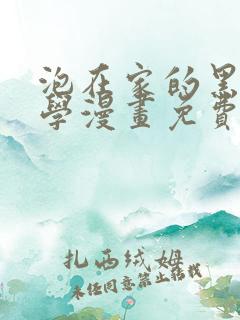 泡在家的黑
學漫畫免費
扎西绒姆
未经同意禁止转载